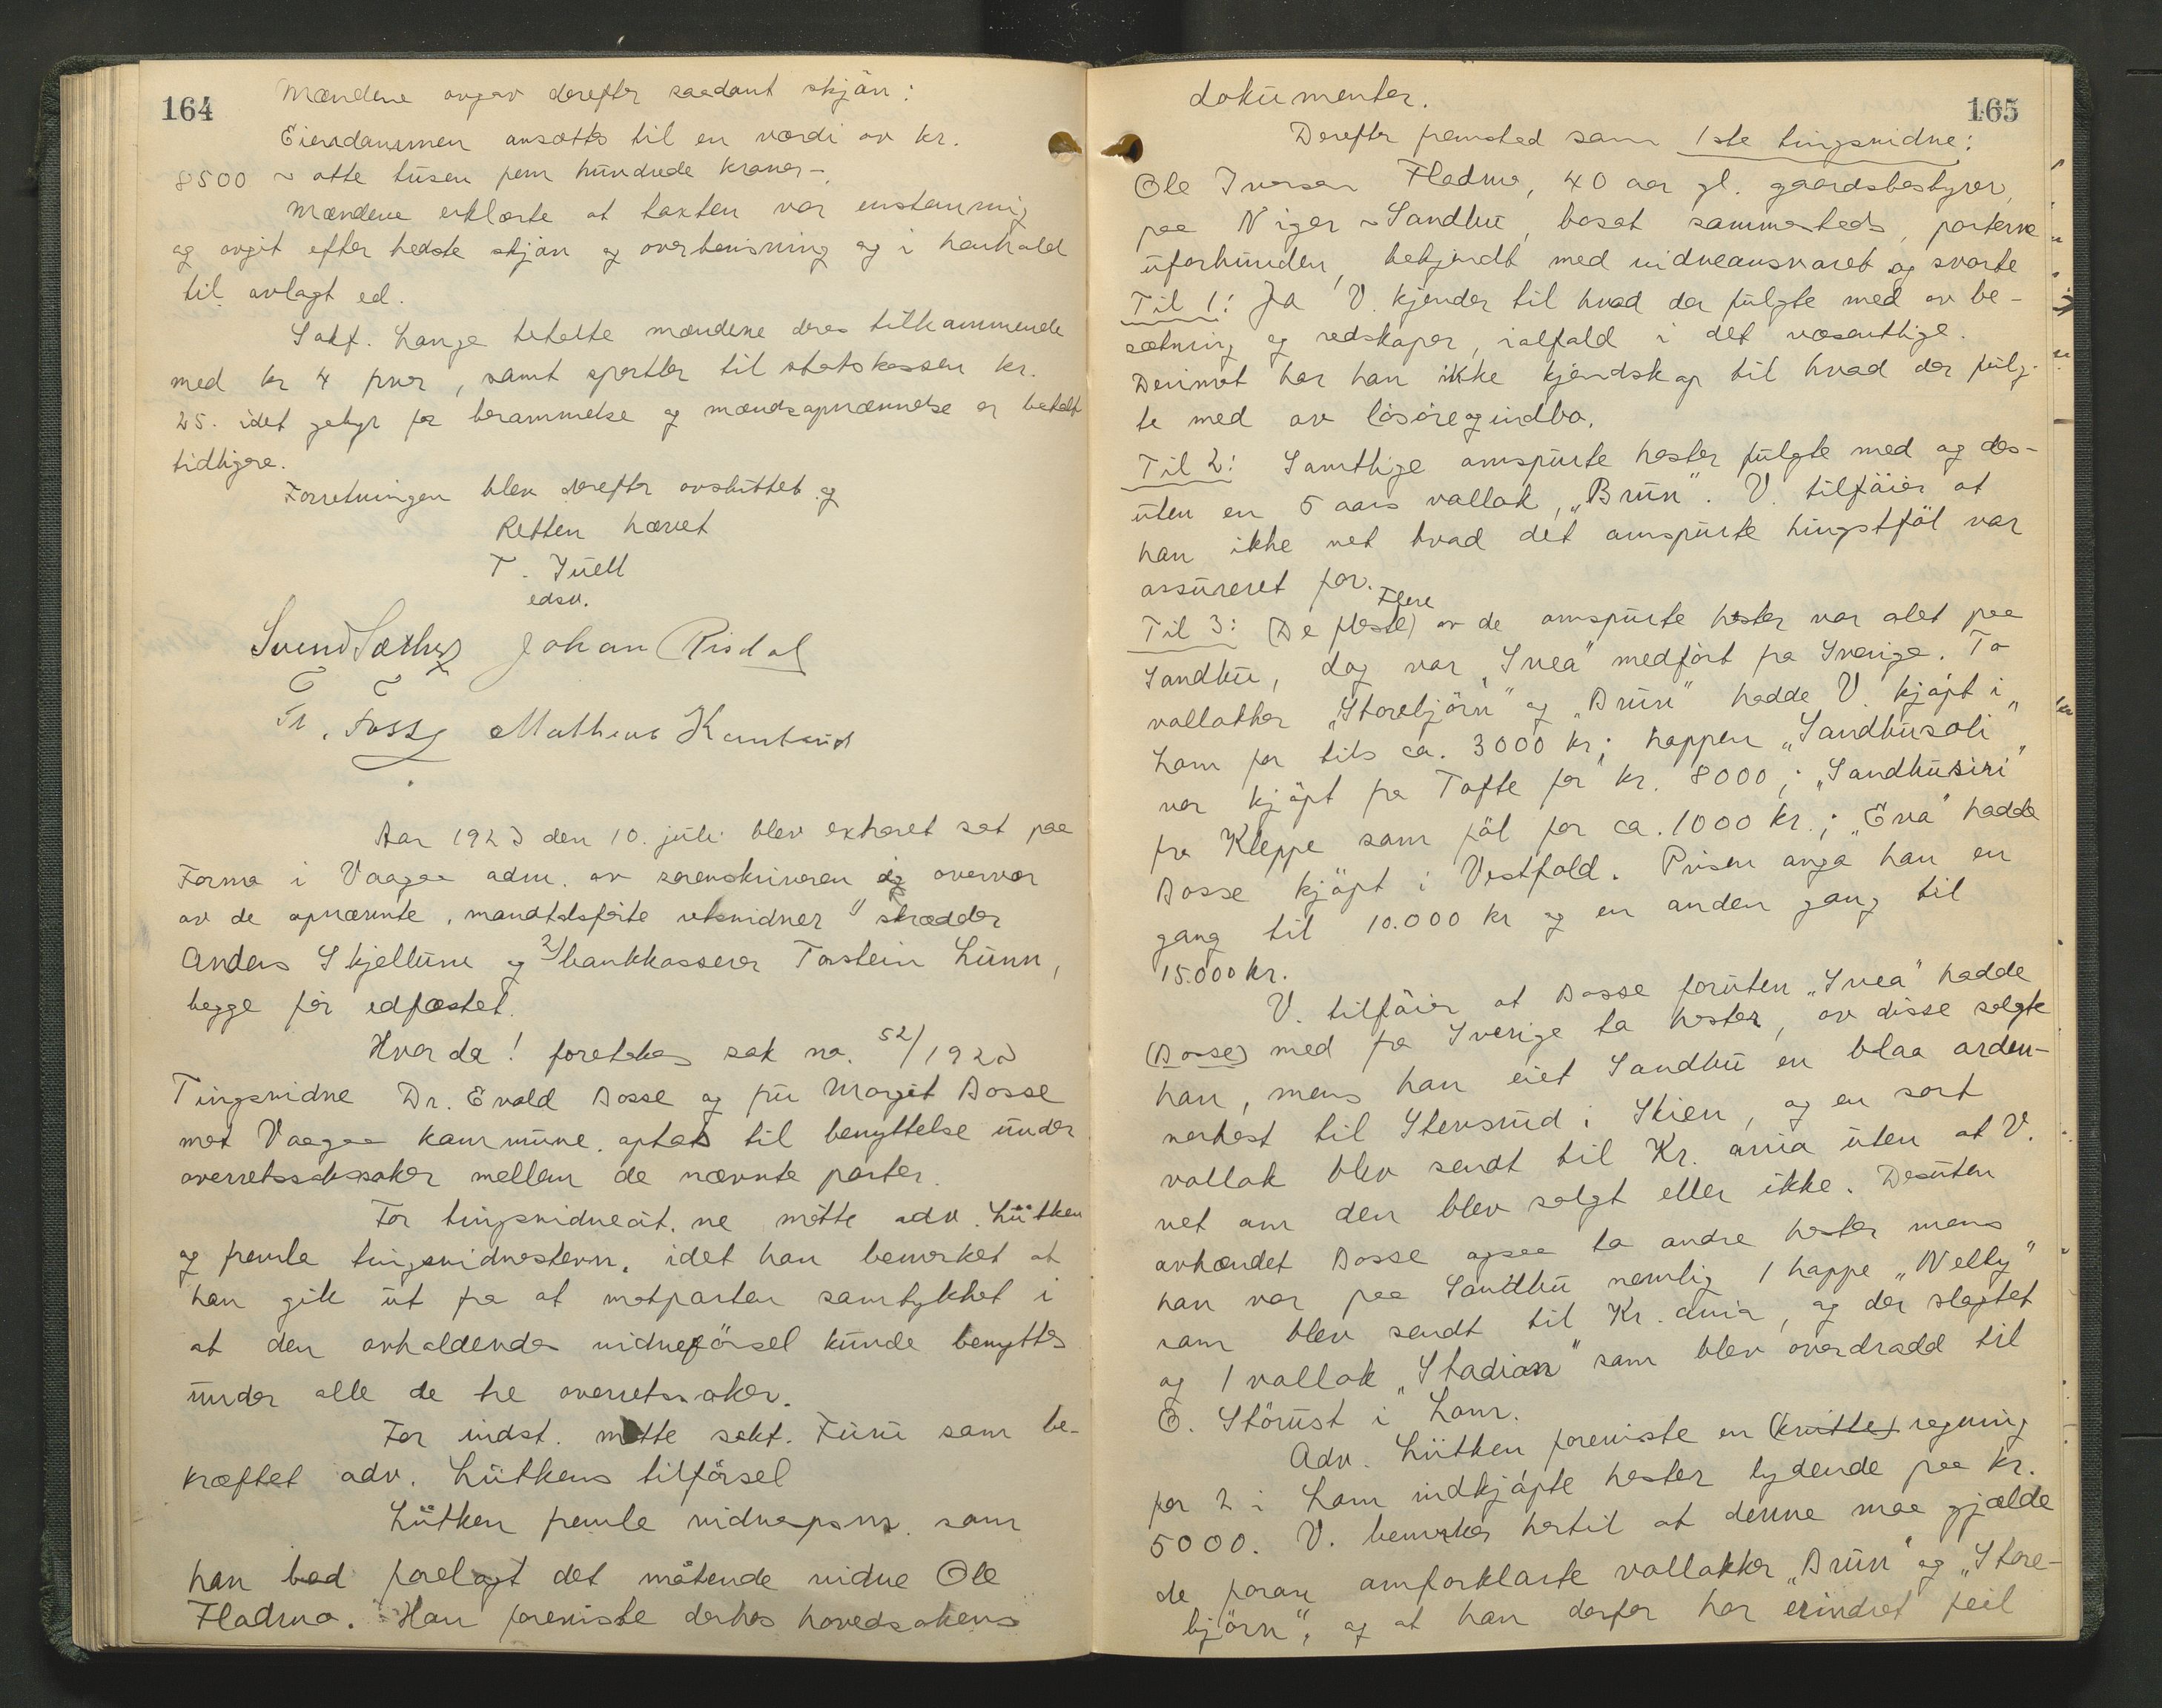 164
Mændene avgav derefter saadant skjøn:
Eiendommen ansættes til en værdi av kr.
8500 ~ otte tusen fem hundrede kroner -.
Mændene erklærte at taxten var enstemmig
og avgit efter bedste skjøn og overbevisning og i henhold
til avlagt ed.
Sakf. Lange betalte mændene deres tilkommende
med kr 4 pver, samt sportler til statskassen kr.
25. idet gebyr for berammelse og mændsopnævnelse er betalt
tidligere.
Forretningen blev derefter avsluttet og
Retten hævet
T. Juell
edsv.
Svend Sæther Johan Risdal
Tr. Foss Mathias Kambuid
Aar 1923 den 10. juli blev extraret sat paa
Formo i Vaagaa adm. av sorenskriveren og overvær
av de opnævnte, mandtalsførte retsvidner 1/ skrædder
Anders Skjellum og 2/ bankkasserer Torstein Lunn,
begge før edfæstet.
Hvorda! foretokes sak no. 52/1923
Tingsvidne Dr. Evald Bosse og fru Margit Bosse
mot Vaagaa kommune. optat til benyttelse under
overretssaker mellem de nævnte parter.
For tingsvidnecit.ne møtte adv. Lütken
og fremla tingsvidnestevn. idet han bemerket at
han gik ut fra at motparten samtykket i
at den avholdendes vidneførsel kunde benyttes
under alle de tre overretssaker.
For indst. møtte sakf. Furu som be-
kræftet adv. Lütkens tilførsel
Lütken fremla vidnespsm. som
han bad forelagt det møtende vidne Ole
Fladmo. Han foreviste derhos hovedsakens
165
dokumenter.
Derefter fremsted som 1ste tingsvidne:
Ole Iversen Fladmo, 40 aar gl. gaardsbestyrer,
paa Niger ~ Sandbu, bosat sammesteds, parterne
uforbunden, bekjendt med vidneansvaret og svarte
Til 1: Ja V. kjender til hvad der fulgte med av be-
sætning og redskaper, ialfald i det væsentlige.
Derimot har han ikke kjendskap til hvad der fulg-
te med av løsøre og indbo.
Til 2: Samtlige omspurte hester fulgte med og des-
uten en 5 aars vallak, „Brun". V. tilføier at
han ikke vet hvad det omspurte hingstføl var
assureret for.
Flere
Til 3: (De fleste) av de omspurte hester var alet paa
Sandbu, dog var „Svea" medført fra Sverige. To
vallakker „Storebjørn" og „Brun" hadde V. kjøpt i
Lom for tils ca. 3000 kr; hoppen „Sandbusoli"
var kjøpt fra Tofte for kr. 8000; „Sandbusiri"
fra Kleppe som føl for ca. 1000 kr.; „Eva" hadde
Bosse kjøpt i Vestfold. Prisen anga han en
gang til 10.000 kr og en anden gang til
15.000 kr.
V. tilføier at Bosse foruten „Svea" hadde
(Bosse) med fra Sverige to hester, av disse solgte
han, mens han eiet Sandbu en blaa arden-
nerhest til Stensrud i Skien, og en sort
vallak blev sendt til Kr.ania uten at V.
vet om den blev solgt eller ikke. Desuten
avhændet Bosse ogsaa to andre hester mens
han var paa Sandbu nemlig 1 hoppe „Nelly"
som blev sendt til Kr.ania, og der slagtet
og 1 vallak „Stadion" som blev overdradd til
O. Størust i Lom.
Adv. Lütken foreviste en (kvitte) regning
for 2 i Lom indkjøpte hester lydende paa kr.
5000. V. bemerker hertil at denne maa gjælde
de foran omforklarte vallakker „Brun" og „Store-
bjørn", og at han derfor har erindret feil